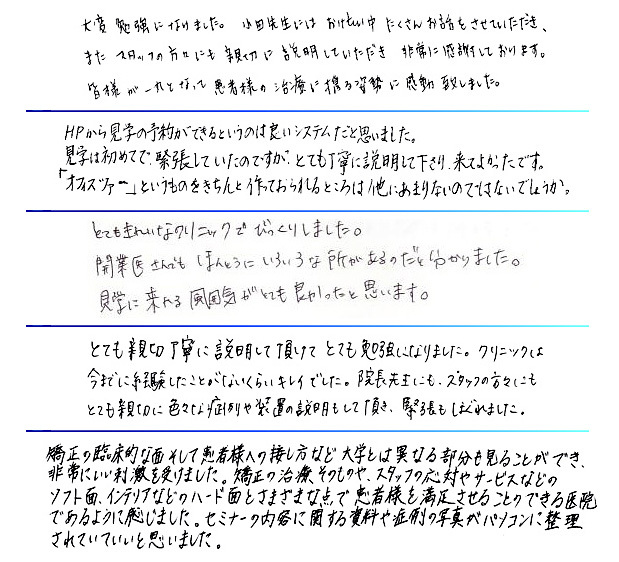 大変勉強になりました。小田先生にはお忙しい中たくさんお話もさせていただき、
また スタッフの方々にも親切に説明していただき 非常に感謝しております。
皆様が一丸となって患者様の治療に携る姿勢に感動致しました。
HPから見学の予約ができるというのは良いシステムだと思いました。
見学は初めてで、緊張していたのですが、とても丁寧に説明して下さり、来てよかったです。
「オフィスツアー」というものをきちんと作っておられるところは他にあまりないのではないでしょうか。
とてもきれいなクリニックでびっくりしました。
開業医さんでも ほんとうにいろいろな所があるのだと分かりました。
見学に来れる雰囲気がとても良かったと思います。
とても親切丁寧に説明して頂けてとても勉強になりました。クリニックは
今までに経験したことがないくらいキレイでした。院長先生にも、スタッフの方々にも
とても親切に色々な症例や装置の説明もして頂き、緊張もほぐれました。
矯正の臨床的な面そして患者様への接し方など大学とは異なる部分も見ることができ、
非常にいい刺激を受けました。矯正の治療そのものや、スタッフの応対やサービスなどの
ソフト面、インテリアなどのハード面とさまざまな点で患者様を満足させることのできる医院
であるように感じました。セミナーの内容に関する資料や症例の写真がパソコンに整理
されていていいと思いました。